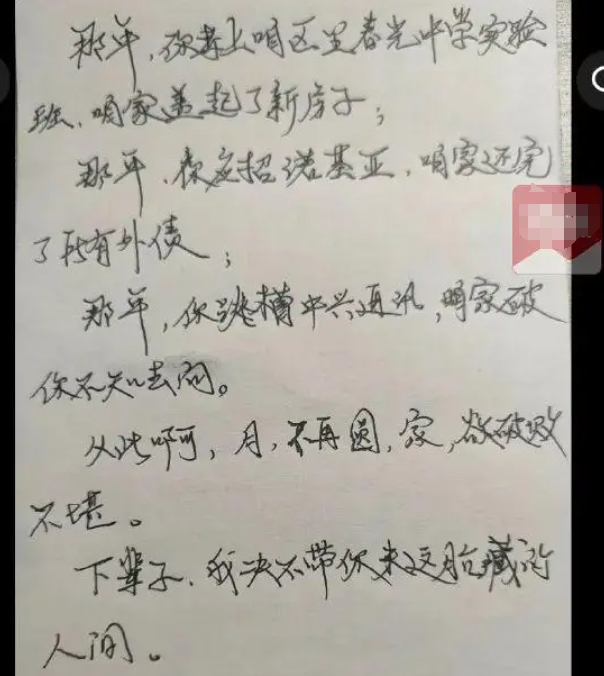 那年,你考上咱区里春光中学实验
班,咱家盖起了新房子;
那年,你应招诺基亚,咱家还完
了所有外债;
那年,你跳槽中兴通讯,咱家破
你不知去向。
从此啊,月,不再圆,家,破败
不堪。
下辈子,我决不带你来这肮脏的
人间。